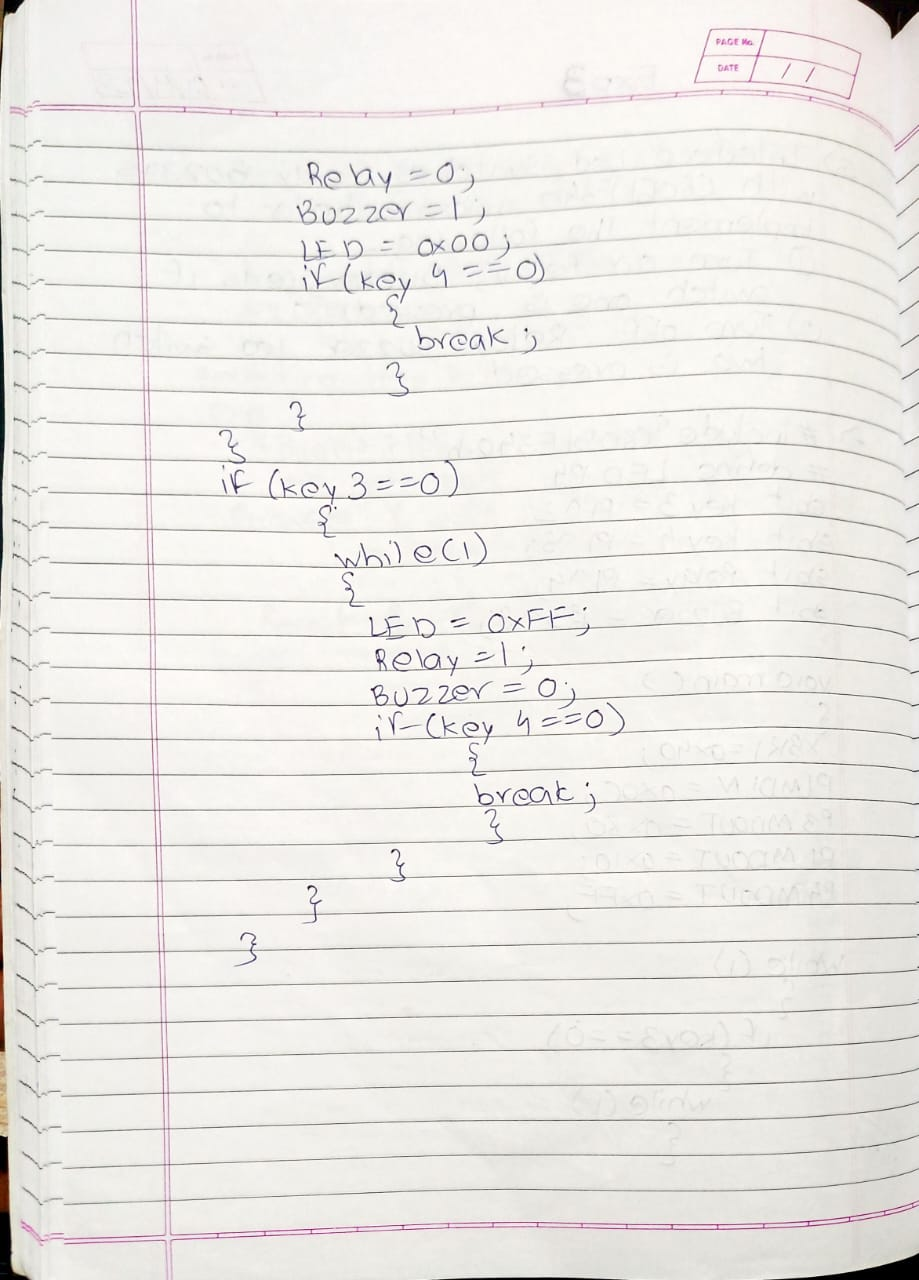 PAGE No.
DATE / /
Relay = 0;
Buzzer = 1;
LED = 0x00;
if (key 4 == 0)
{
break;
}
}
}
if (key 3 == 0)
{
while(1)
{
LED = 0xFF;
Relay = 1;
Buzzer = 0;
if (key 4 == 0)
{
break;
}
}
}
}